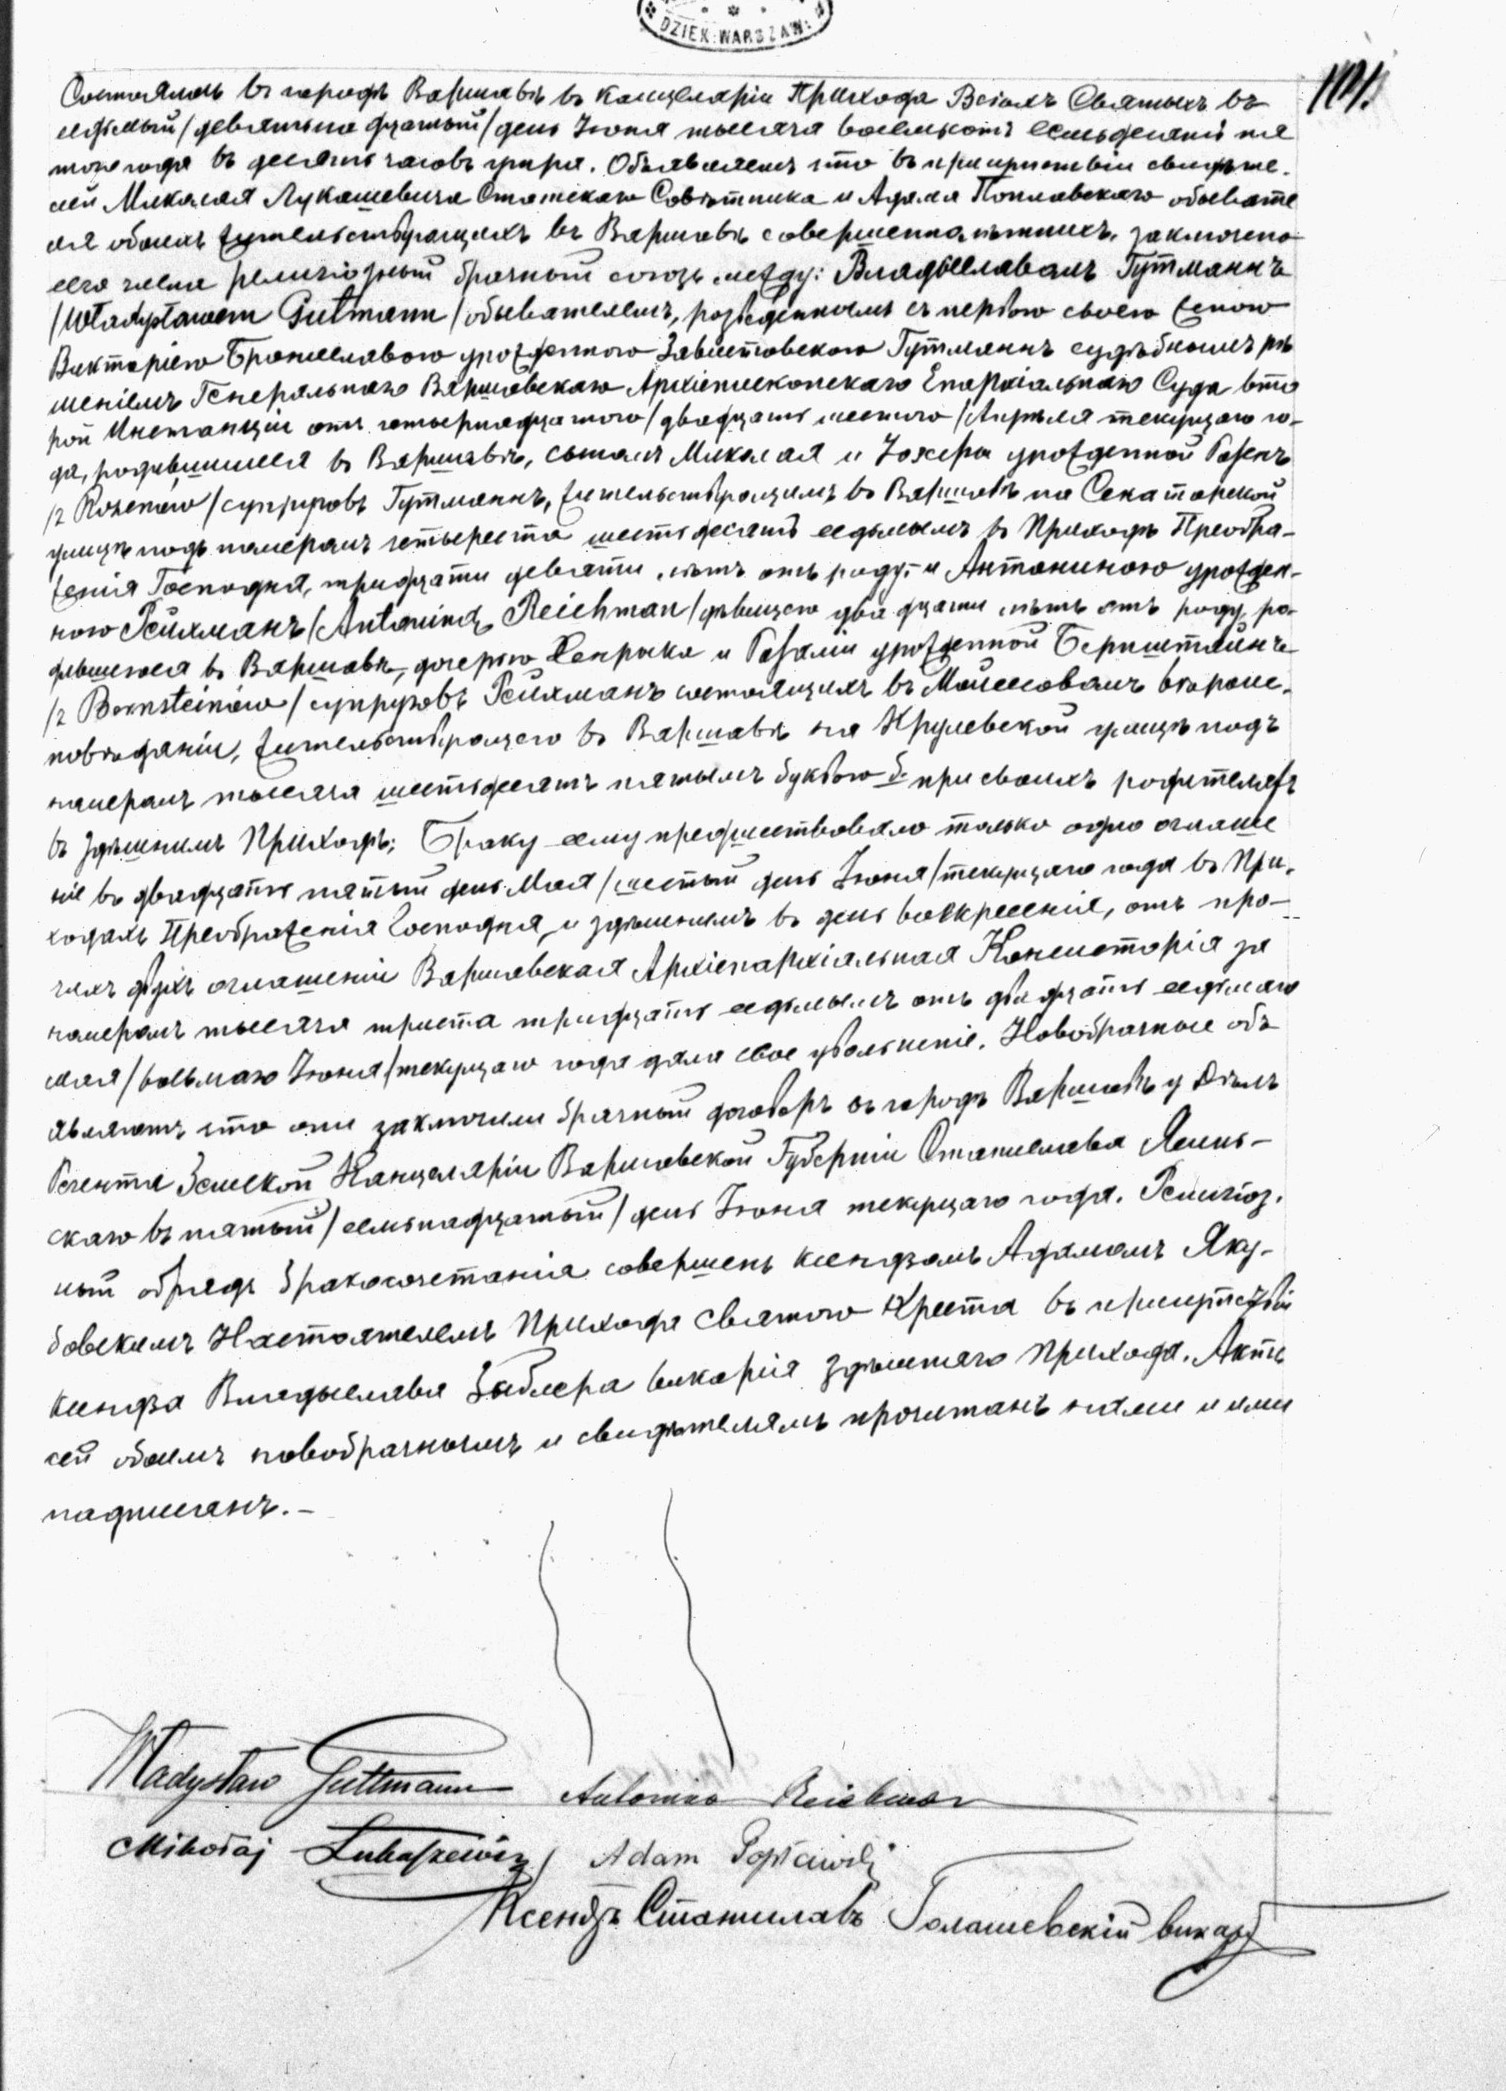 DZIEK. WARSZAW.
Состоялось въ городѣ Варшавѣ въ Канцеляріи Прихода Всѣхъ Святыхъ въ
седьмый /девятьнадцатый/ день Іюня тысяча восемьсотъ семьдесятъ пя
таго года въ десять часовъ утра. Объявляемъ что въ присутствіи свидѣте-
лей Миколая Лукашевича Статскаго Совѣтника и Адама Поплавскаго обывате
ля обоихъ жительствующихъ въ Варшавѣ совершеннолѣтнихъ, заключено
сего числа религіозный брачный союзъ между: Владыславомъ Гутманнъ
/Władysławem Gutmann/ обывателемъ, розведеннымъ съ первою своею женою
Викторіею Брониславою урожденною Завистовскою Гутманнъ судебнымъ рѣ
шеніемъ Генеральнаго Варшавскаго Архіепископскаго Епархіальнаго Суда вто
рой Инстанціи отъ четырнадцатого /двадцать шестого/ Апрѣля текущаго го-
да, родившимся въ Варшавѣ, сыномъ Миколая и Юзефы урожденной Розенъ
/z Rozenów/ супруговъ Гутманнъ, жительствующимъ въ Варшавѣ на Сенаторской
улицѣ подъ номеромъ четыреста шестьдесятъ седьмымъ въ Приходѣ Преобра-
женія Господня, тридцати девяти лѣтъ отъ роду; и Антониною урожден-
ною Рейхманъ /Antoniną Reichman/ дѣвицею двадцати лѣтъ отъ роду, ро-
дившеюся въ Варшавѣ, дочерью Генрыка и Розаліи урожденной Бернштейнъ
/z Bernsteinów/ супруговъ Рейхманъ состоящихъ въ Мойсеовомъ вѣроис-
повѣданіи, жительствующею въ Варшавѣ на Крулевской улицѣ подъ
номеромъ тысяча шестьдесятъ пятымъ буквою б. при своихъ родителяхъ
въ здѣшнимъ Приходѣ; Браку сему предшествовало только одно оглаше
ніе въ двадцать пятый день Мая /шестый день Іюня/ текущаго года въ При-
ходахъ Преображенія Господня и здѣшнимъ въ день воскресенія, отъ про-
чихъ двухъ оглашеніи Варшавская Архіепархіальная Консисторія за
номеромъ тысяча триста тридцать седьмымъ отъ двадцать седьмаго
Мая /восьмаго Іюня/ текущаго года дала свое увольненіе. Новобрачные объ
являютъ что они заключили брачный договоръ въ городѣ Варшавѣ у Дѣлъ
Регента Земской Канцеляріи Варшавской Губерніи Станислава Ясинь-
скаго въ пятый /семьнадцатый/ день Іюня текущаго года. Религіоз-
ный обрядъ бракосочетанія совершенъ ксендзомъ Адамомъ Яку-
бовскимъ Настоятелемъ Прихода Святого Креста въ присутствіи
ксендза Владыслава Зиблера викарія здѣшняго Прихода. Актъ
сей обоимъ новобрачнымъ и свидѣтелямъ прочитанъ нами и ими
подписанъ.—
Władysław Guttmann Antonina Reichman
Mikołaj Łukaszewicz Adam Popławski
Ксендзъ Станиславъ Голашевскій викарій